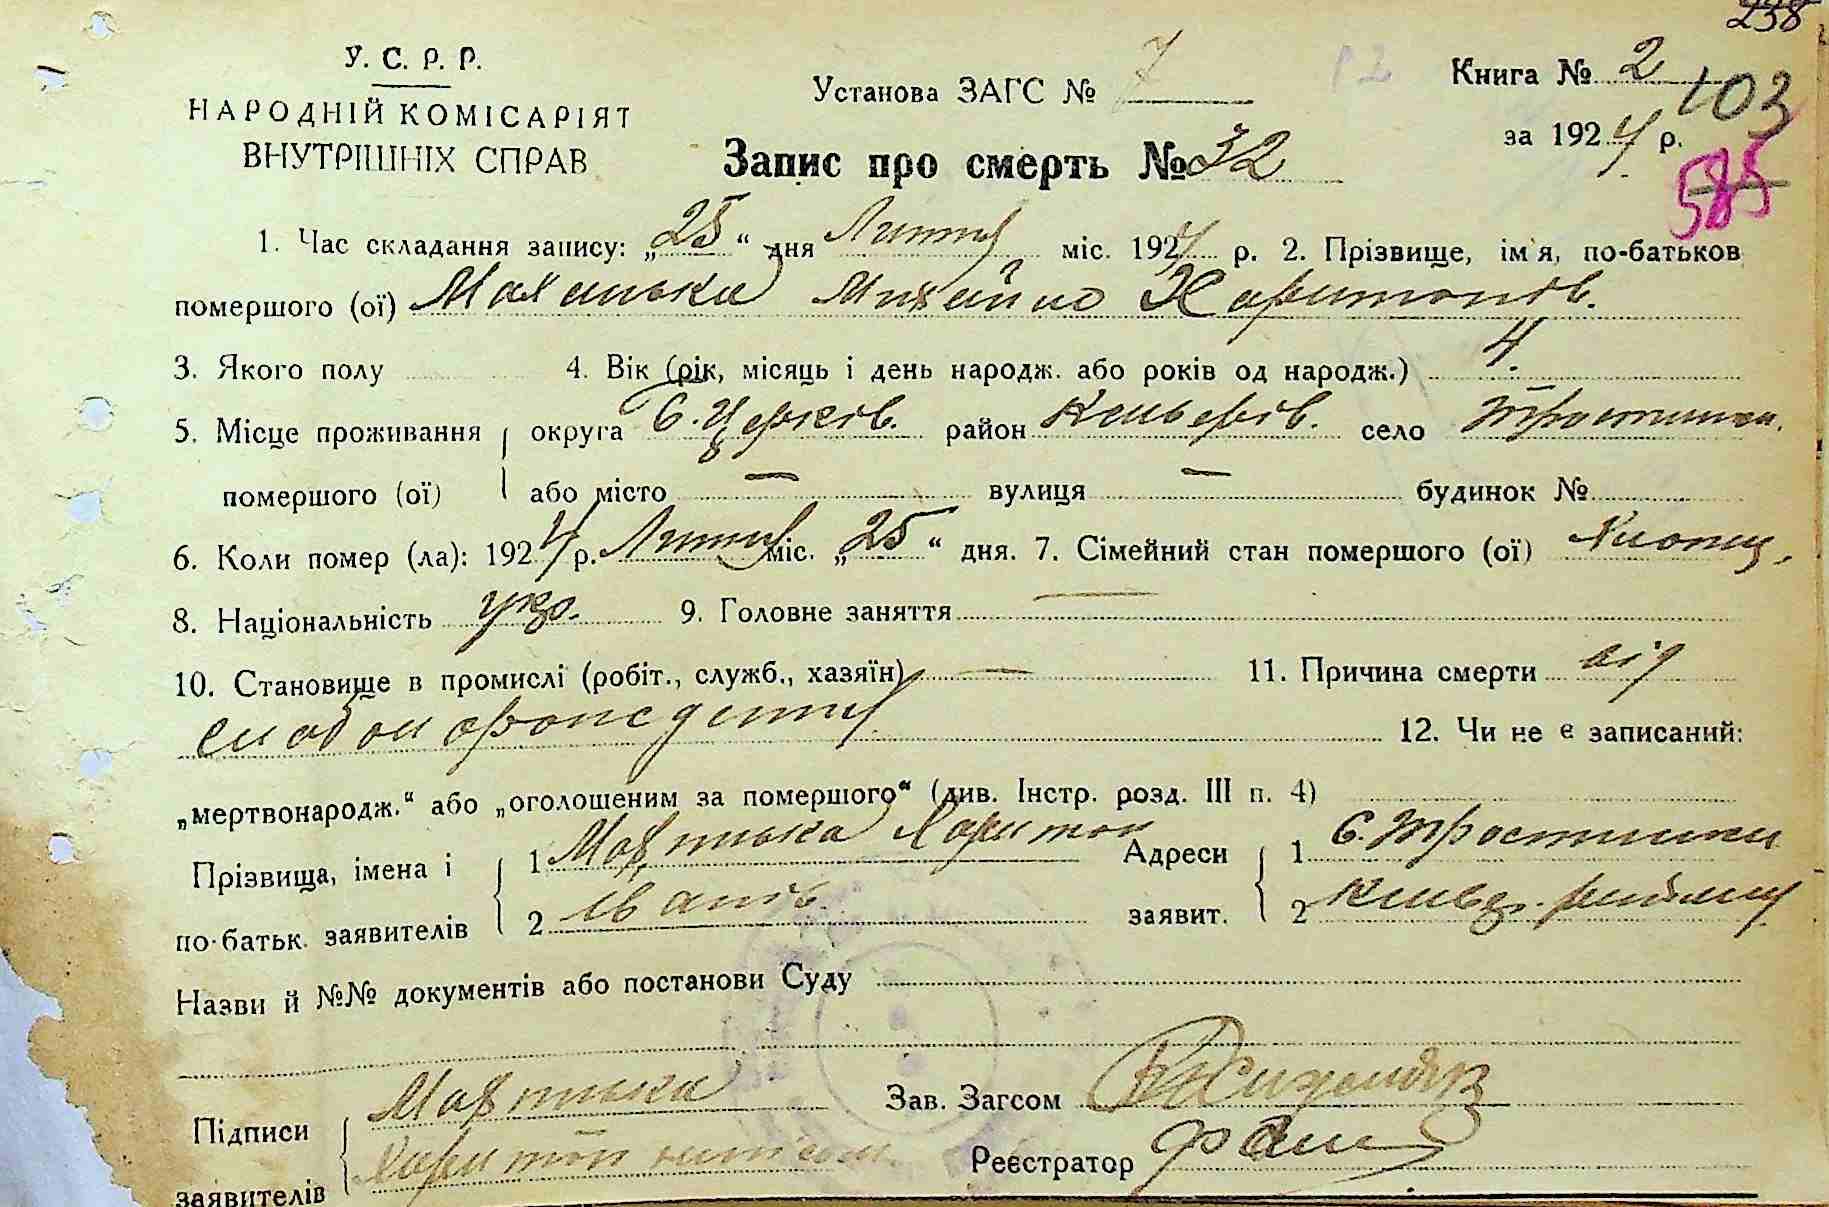 238
У. С. Р. Р.
Установа ЗАГС № 7
Книга № 2
103
НАРОДНІЙ КОМІСАРІЯТ
за 1924 р.
ВНУТРІШНІХ СПРАВ
Запис про смерть № 32
585
1. Час складання запису: „25“ дня Липня міс. 1924 р. 2. Прізвище, ім'я, по-батьков
помершого (ої) Михайло Харитонів.
3. Якого полу 4. Вік (рік, місяць і день народж. або років од народж.) 4.
5. Місце проживання округа Б. Церків. район село Тростинка.
помершого (ої) або місто — вулиця — будинок №
6. Коли помер (ла): 1924 р. Липня міс. „25“ дня. 7. Сімейний стан помершого (ої) Хлопец.
8. Національність укр. 9. Головне заняття —
10. Становище в промислі (робіт., служб., хазяїн) — 11. Причина смерти від
слабой 12. Чи не є записаний:
„мертвонародж.“ або „оголошеним за помершого“ (див. Інстр. розд. III п. 4)
Прізвища, імена і 1 Харитон Адреси 1 С. Тростинки
по-батьк. заявителів 2 Іванів заявит. 2
Назви й №№ документів або постанови Суду
Підписи Зав. Загсом
Харитон
заявителів Реєстратор